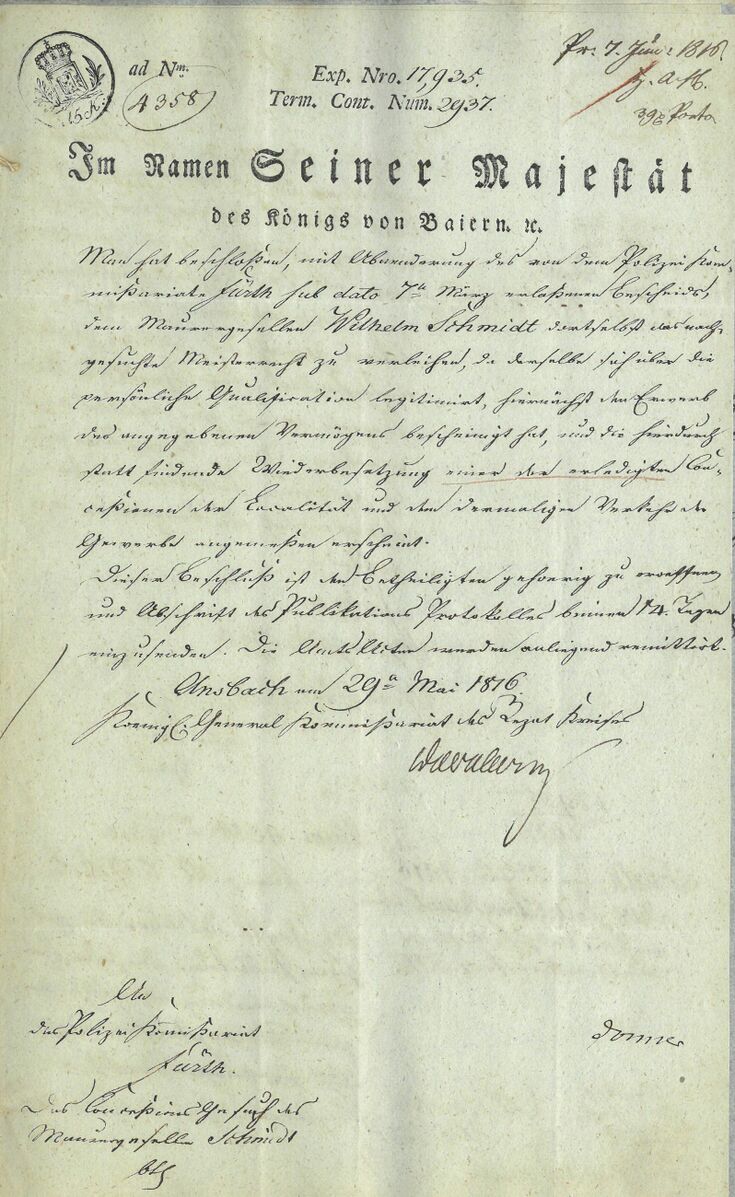 ad Nm.
4358
15 K.
Exp. Nro. 17,935.
Term. Cont. Num. 2937.
Pr: 7. Jun: 1816.
39x Porto
Im Namen Seiner Majestät
des Königs von Baiern. ꝛc.
Man hat beschloßen, mit Abaenderung des von dem Polizei Kom-
mißariate Fürth sub dato 7n März erlaßenen Bescheids,
dem Maurergesellen Wilhelm Schmidt dortselbst das nach-
gesuchte Meisterrecht zu verleihen, da derselbe sich über die
persönliche Qualification legitimirt, hiernächst den Erwerb
des angegebenen Vermögens bescheinigt hat, und die hierdurch
statt findende Wiederbesetzung einer der erledigten Con-
ceßionen der Localität und dem dermaligen Verkehr der
Gewerbe angemeßen erscheint.
Dieser Beschluß ist den Betheiligten gehoerig zu eroeffnen
und Abschrift des Publikations Protokolles binnen 14. Tagen
einzusenden. Die Amts Acten werden anliegend remittirt.
Ansbach am 29n Mai 1816.
Koenigl. General Kommißariat des Rezat Kreises
An
das Polizei Komißariat
Fürth.
Donner
Das Conceßions Gesuch des
Maurergeselle Schmidt
btf